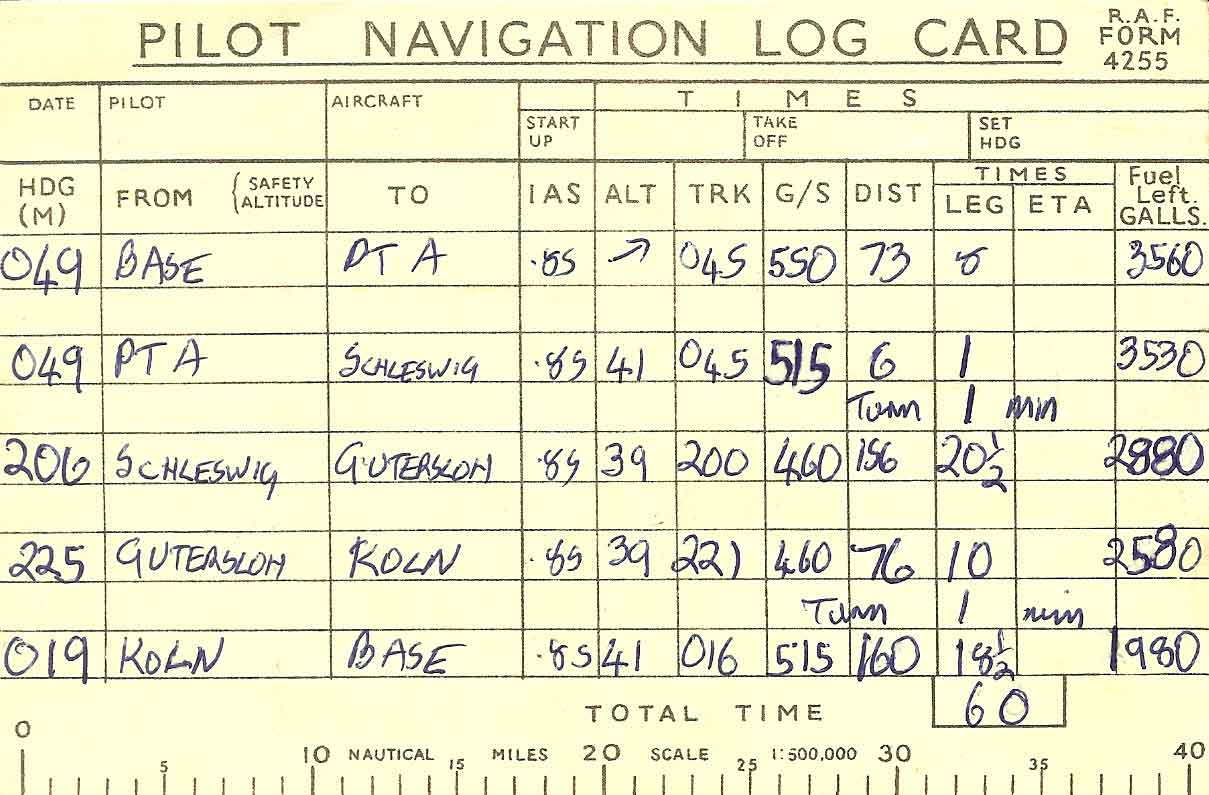 PILOT NAVIGATION LOG CARD
R.A.F.
FORM
4255
DATE PILOT AIRCRAFT TIMES
START UP TAKE OFF SET HDG
HDG (M) FROM {SAFETY ALTITUDE TO IAS ALT TRK G/S DIST TIMES LEG ETA Fuel Left. GALLS.
049 BASE PT A .85 ↗ 045 550 73 8 3560
049 PT A SCHLESWIG .85 41 045 515 6 1 3530
Turn 1 min
206 SCHLESWIG GUTERSLOH .85 39 200 460 156 20½ 2880
225 GUTERSLOH KOLN .85 39 221 460 76 10 2580
Turn 1 min
019 KOLN BASE .85 41 016 515 160 18½ 1980
TOTAL TIME 60
0 5 10 NAUTICAL 15 MILES 20 SCALE 25 1:500,000 30 35 40